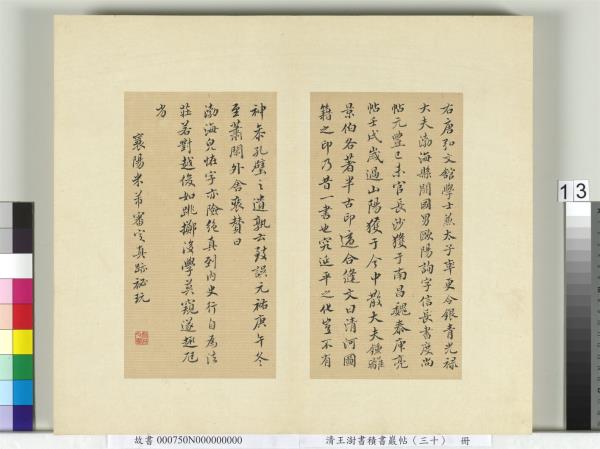 右唐弘文館學士兼太子率更令銀青光祿
大夫渤海縣開國男歐陽詢字信長書度尚
帖元豐己未官長沙獲于南昌魏泰庾亮
帖壬戌歲過山陽獲于今中散大夫鍾離
景伯各著半古印適合縫文曰清河圖
籍之印乃昔一書也究延平之化豈不有
神奈孔壁之遺孰云裝誤元祐庚午冬
至蕭閒外舍裝贊曰
渤海光怪字亦險絕真到內史行自為法
莊若對越俊如跳擲後學莫窺遂趨尪
劣
襄陽米芾審定真跡祕玩
13
故書 000750N000000000
清王澍書積書巖帖(三十) 冊